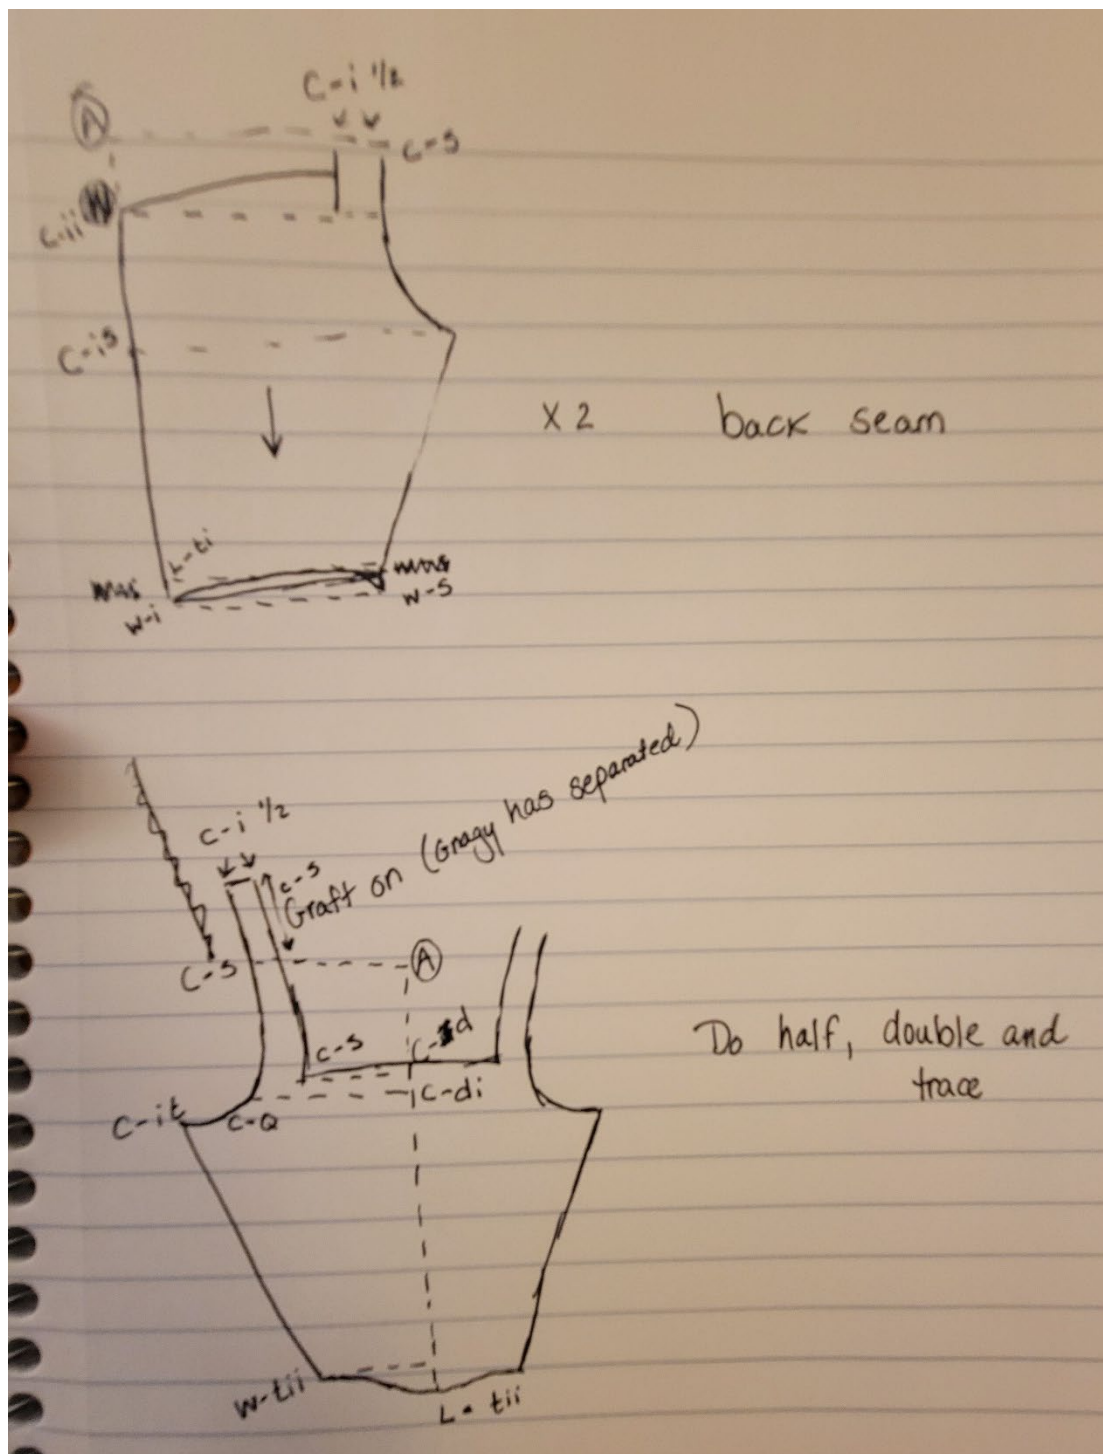 C-i 1/2
A
C-S
W
C-ii
C-is
X 2 back seam
L-ti
W-i
W-S
C-i 1/2
C-S
Graft on (Gragy has separated)
C-S
A
C-S
C-d
C-di
Do half, double and
trace
C-it
C-Q
W-tii
L-tii